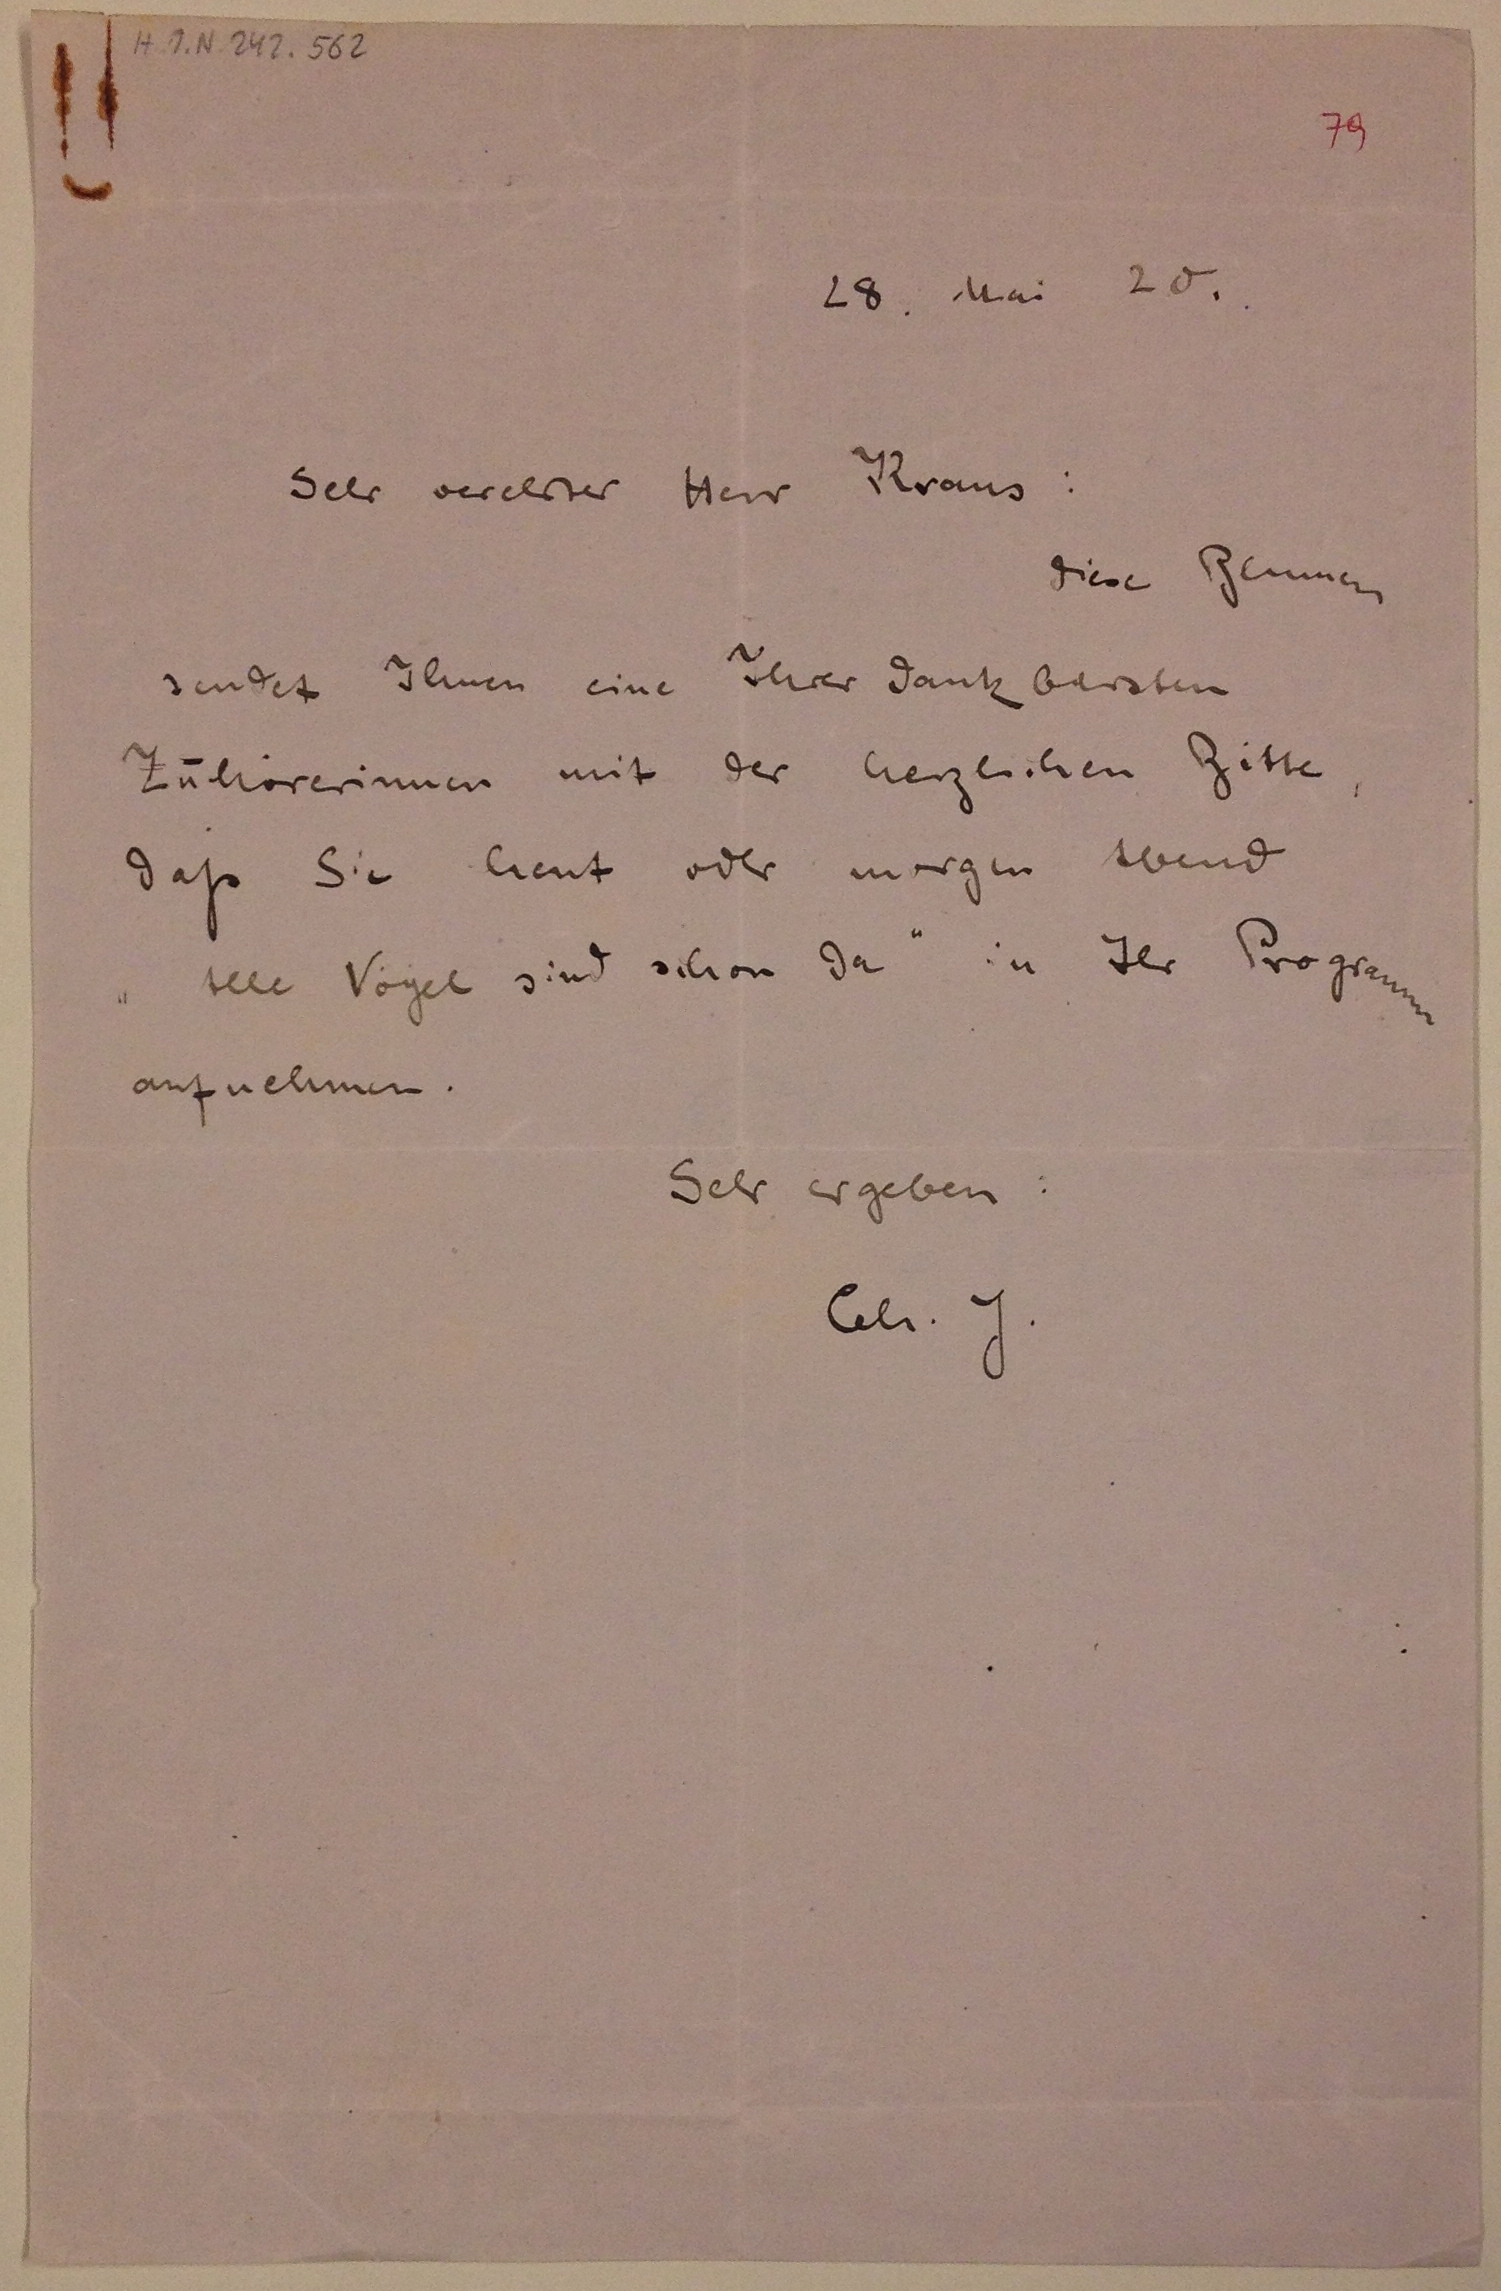 H.I.N. 242.562
79
28. Mai 20.
Sehr verehrter Herr Kraus:
diese Blumen
sendet Ihnen eine Ihrer dankbarsten
Zuhörerinnen mit der herzlichen Bitte,
daß Sie heut oder morgen Abend
„Alle Vögel sind schon da" in Ihr Programm
aufnehmen.
Sehr ergeben:
Ch. J.